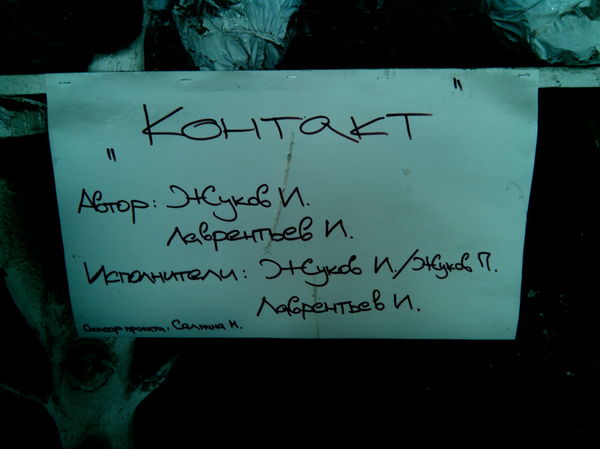 "Контакт"
Автор: Жуков И.
Лаврентьев И.
Исполнители: Жуков И./Жуков П.
Лаврентьев И.
проекта: Салкина Н.